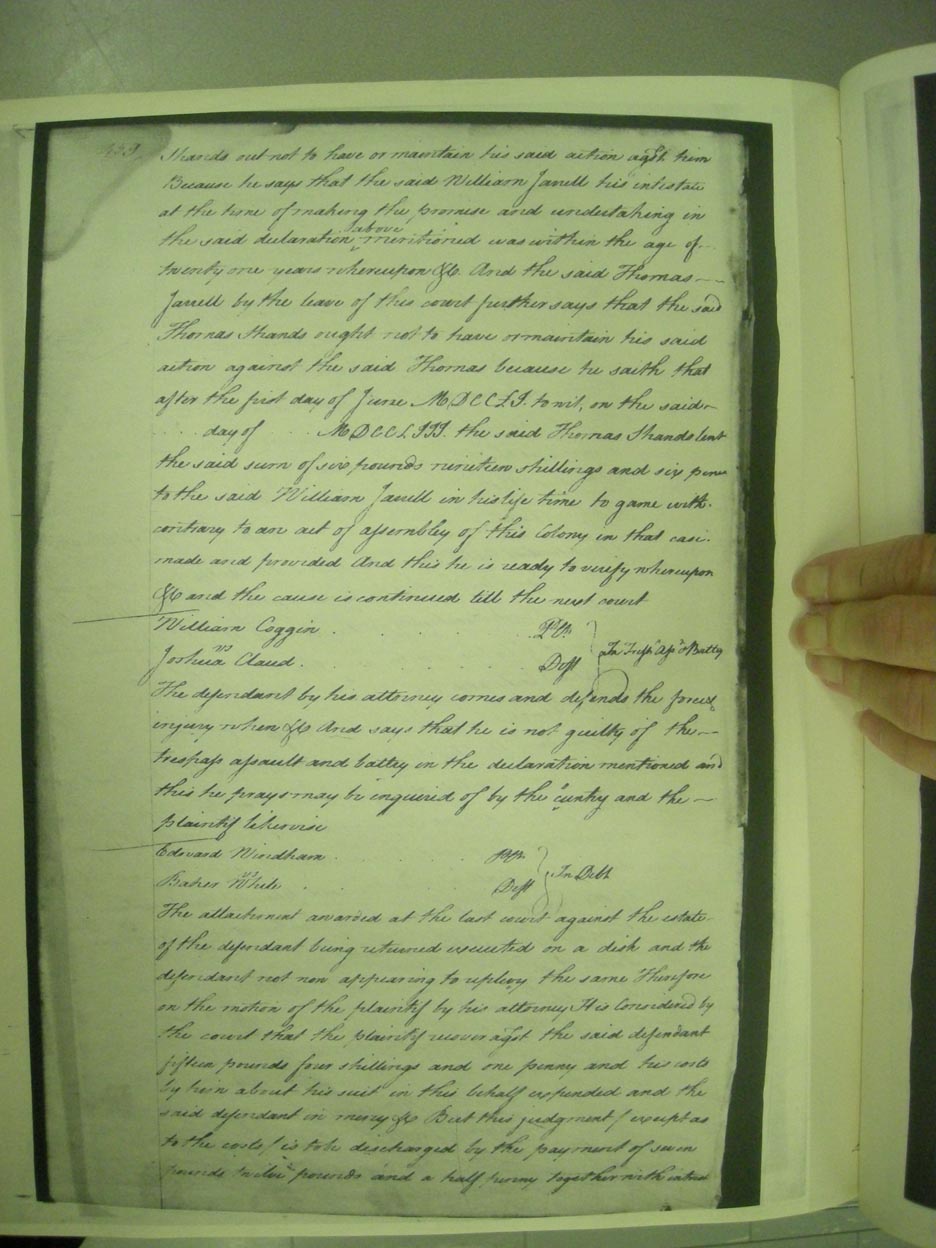 Shands out not to have or maintain his said action agst him
Because he says that the said William Jarrell his intestate
at the time of making the promise and undertaking in
the said declaration above mentioned was within the age of
twenty one years whereupon &c. And the said Thomas
Jarrell by the leave of this court further says that the said
Thomas Shands ought not to have or maintain his said
action against the said Thomas because he saith that
after the first day of June MDCCLI. to wit, on the said
day of MDCCLIII. the said Thomas Shands lent
the said sum of six pounds nineteen shillings and six pence
to the said William Jarrell in his life time to game with
contrary to an act of assembley of this Colony in that case
made and provided And this he is ready to verify whereupon
&c and the cause is continued till the next court
William Coggin Plt.
vs
Joshua Claud. Deft
In Tresps Asst & Battry
The defendant by his attorney comes and defends the force &
injury when &c And says that he is not guilty of the
trespass assault and battey in the declaration mentioned and
this he prays may be inquired of by the cuntry and the
plaintif likewise
Edward Windham Plt.
vs
Baker White Deft
In Debt
The attachment awarded at the last court against the estate
of the defendant being returned executed on a dish and the
defendant not now appearing to replevy the same Therefore
on the motion of the plaintif by his attorney It is Considered by
the court that the plaintif recover agst the said defendant
fifteen pounds four shillings and one penny and his costs
by him about his suit in this behalf expended and the
said defendant in mercy &c But this judgment / except as
to the costs / is to be discharged by the payment of seven
pounds twelve pounds and a half penny together with interest